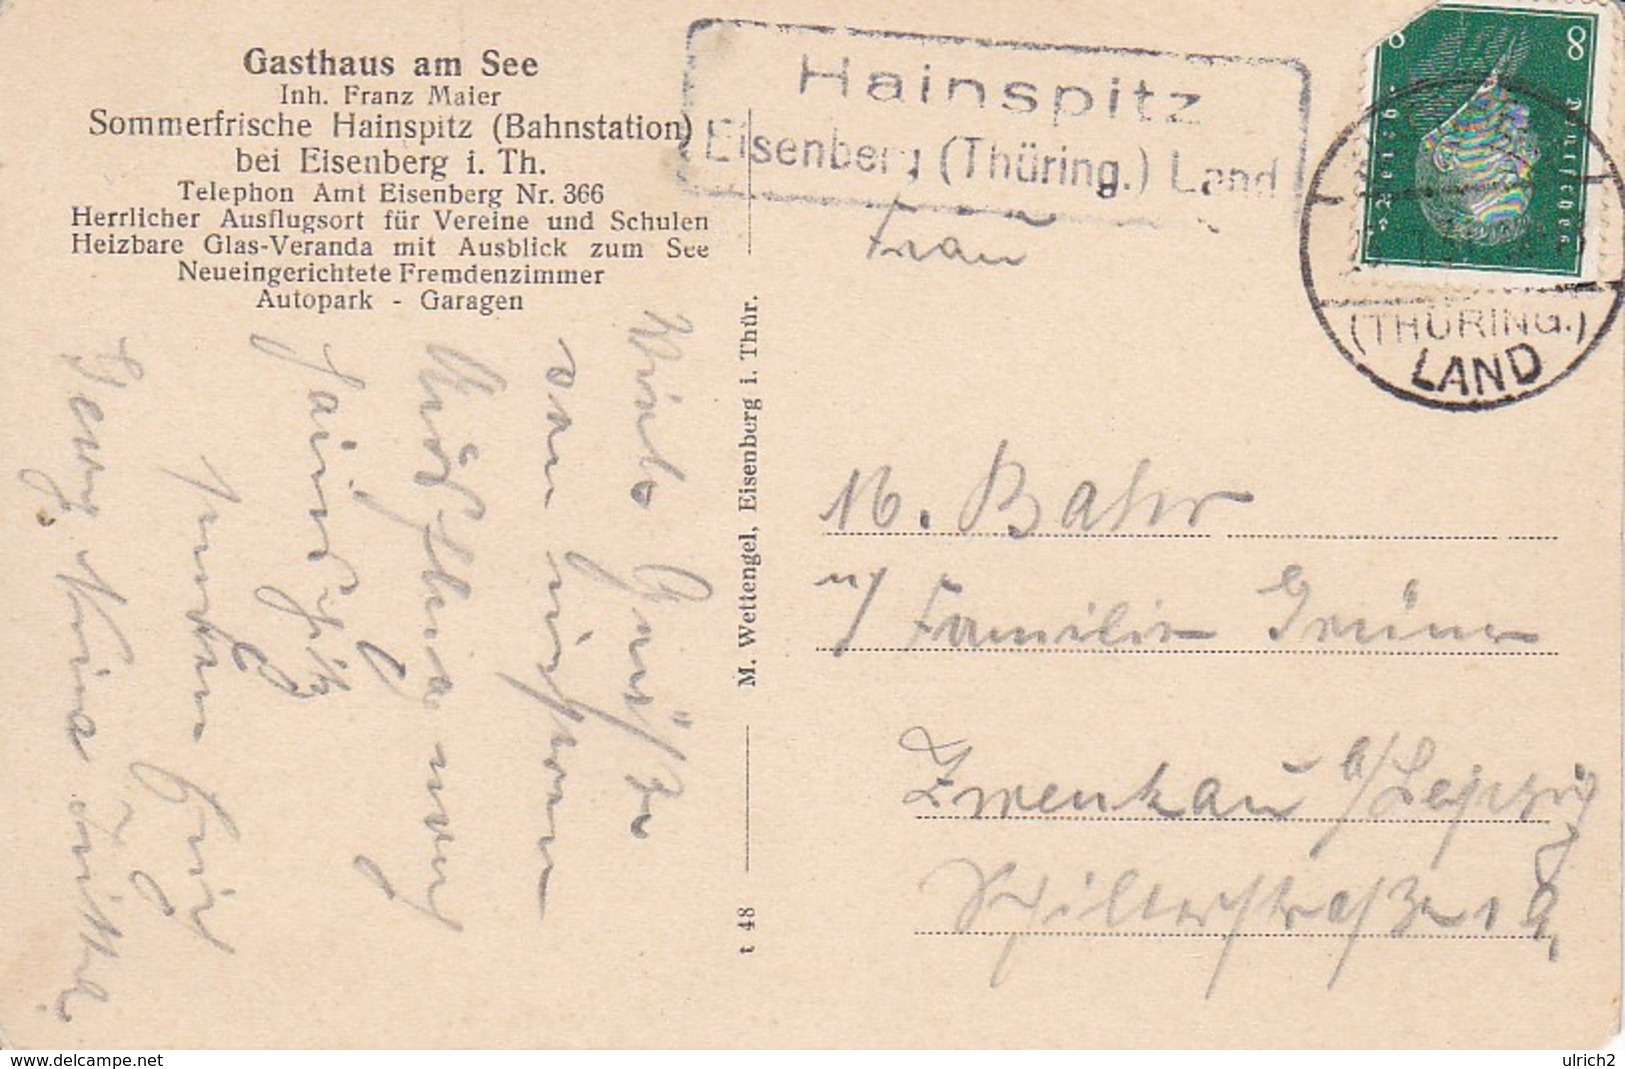 Gasthaus am See
Inh. Franz Maier
Sommerfrische Hainspitz (Bahnstation)
bei Eisenberg i. Th.
Telephon Amt Eisenberg Nr. 366
Herrlicher Ausflugsort für Vereine und Schulen
Heizbare Glas-Veranda mit Ausblick zum See
Neueingerichtete Fremdenzimmer
Autopark - Garagen
Viele Grüße
von unserem
nach
Hainspitz
senden Euch
M. Wettengel, Eisenberg i. Thür.
t 48
Hainspitz
Eisenberg (Thüring.) Land
8
8
Deutsches
(THÜRING.)
LAND
Frau
M. Bahr
Familie Grüner
Zwenkau b/Leipzig
delcampe.net
ulrich2